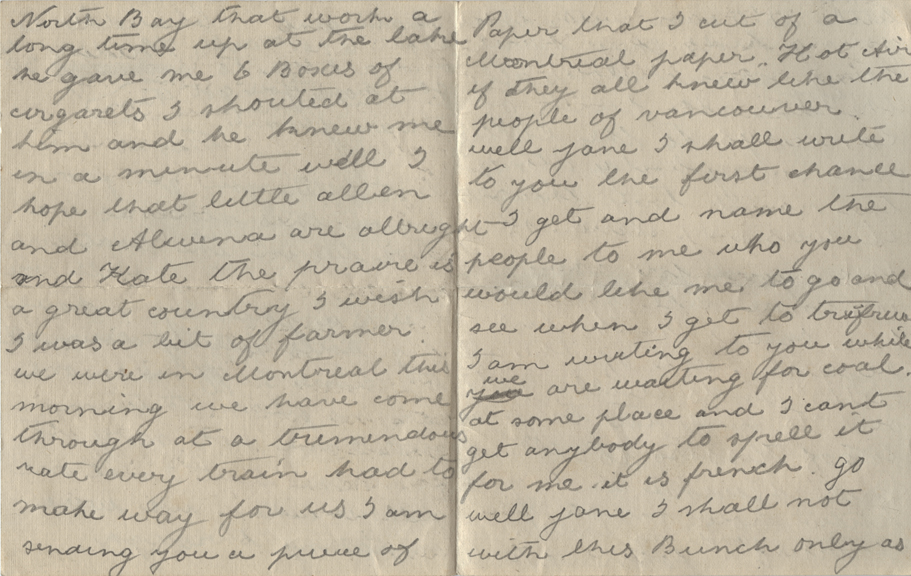 North Bay that work a
long time up at the lake
he gave me 6 Boxes of
cigarets I shouted at
him and he knew me
in a minute well I
hope that little allen
and Alwena are allright
and Kate the prarie is
a great country I wish
I was a bit of farmer.
we were in Montreal this
morning we have come
through at a tremendous
rate every train had to
make way for us I am
sending you a piece of
Paper that I cut of a
Montreal paper. Hot Air
if they all knew like the
people of vancouver
well jane I shall write
to you the first chance
I get and name the
people to me who you
would like me to go and
see when I get to
I am writing to you while
we
you are waiting for coal.
at some place and I cant
get anybody to spell it
for me it is french. go
well jane I shall not
with this Bunch only as